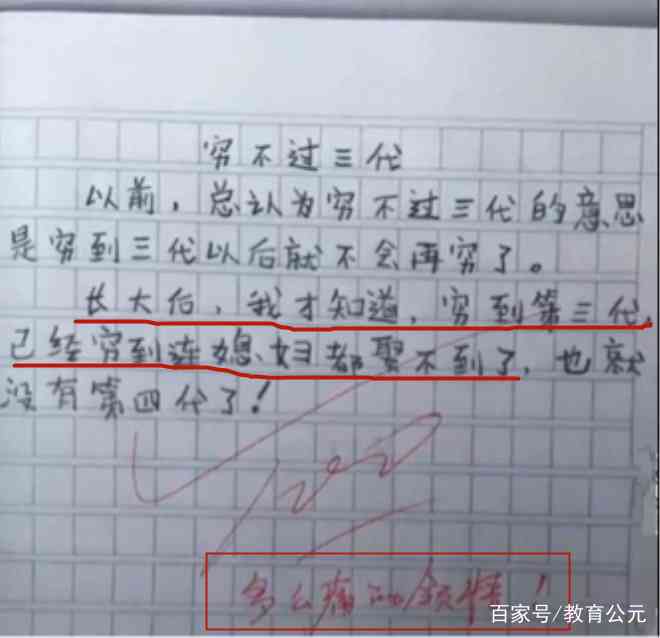 穷不过三代
以前，总认为穷不过三代的意思
是穷到三代以后就不会再穷了。
长大后，我才知道，穷到第三代，
已经穷到连媳妇都娶不到了，也就
没有第四代了！
多么痛的领悟！
百家号/教育公元